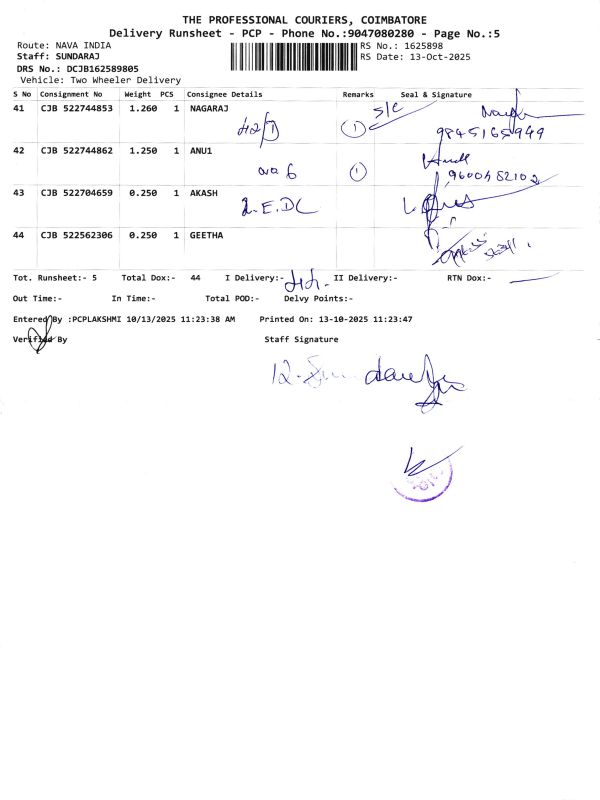 THE PROFESSIONAL COURIERS, COIMBATORE
Delivery Runsheet - PCP - Phone No.:9047080280 - Page No.:5
Route: NAVA INDIA RS No.: 1625898
Staff: SUNDARAJ RS Date: 13-Oct-2025
DRS No.: DCJB162589805
Vehicle: Two Wheeler Delivery
S No Consignment No Weight PCS Consignee Details Remarks Seal & Signature
41 CJB 522744853 1.260 1 NAGARAJ S/C
1 9845165949
42 CJB 522744862 1.250 1 ANU1
no 6 1
43 CJB 522704659 0.250 1 AKASH
2.E.DC
44 CJB 522562306 0.250 1 GEETHA
Tot. Runsheet:- 5 Total Dox:- 44 I Delivery:- II Delivery:- RTN Dox:-
Out Time:- In Time:- Total POD:- Delvy Points:-
Entered By :PCPLAKSHMI 10/13/2025 11:23:38 AM Printed On: 13-10-2025 11:23:47
Verified By Staff Signature